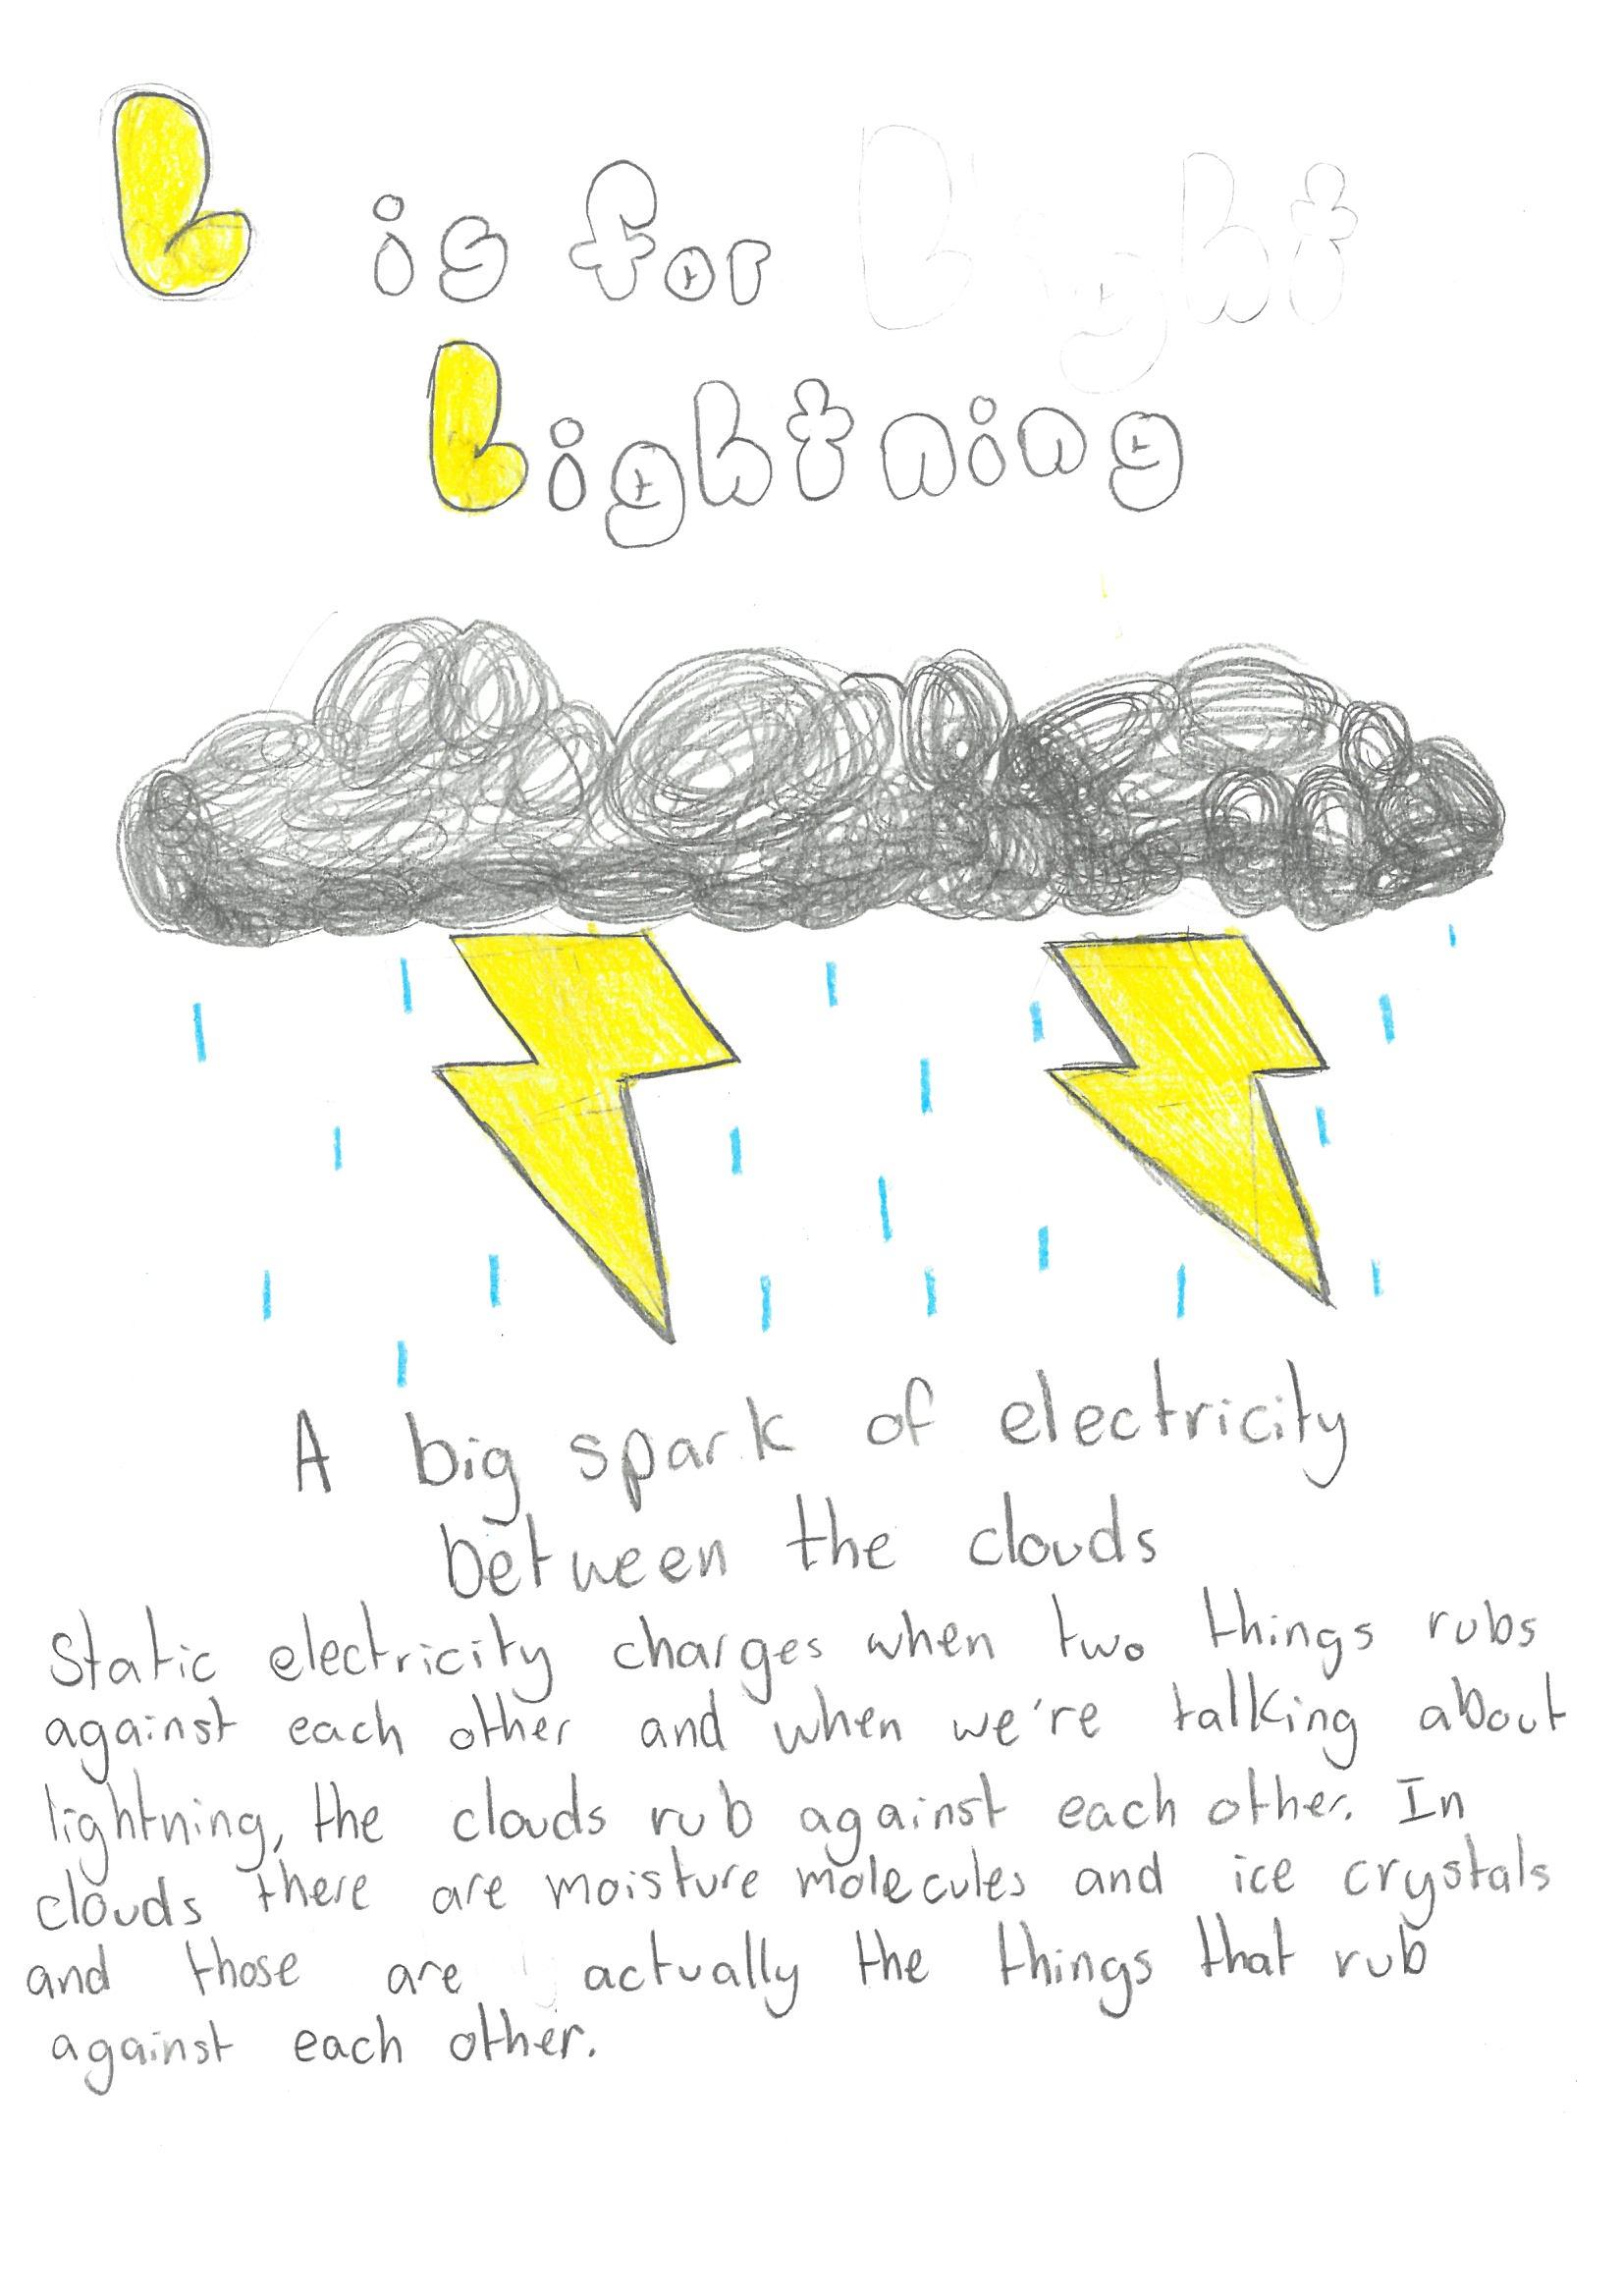 L is for Light
Lightning
A big spark of electricity
between the clouds
Static electricity charges when two things rubs
against each other and when we're talking about
lightning, the clouds rub against each other. In
clouds there are moisture molecules and ice crystals
and those are actually the things that rub
against each other.